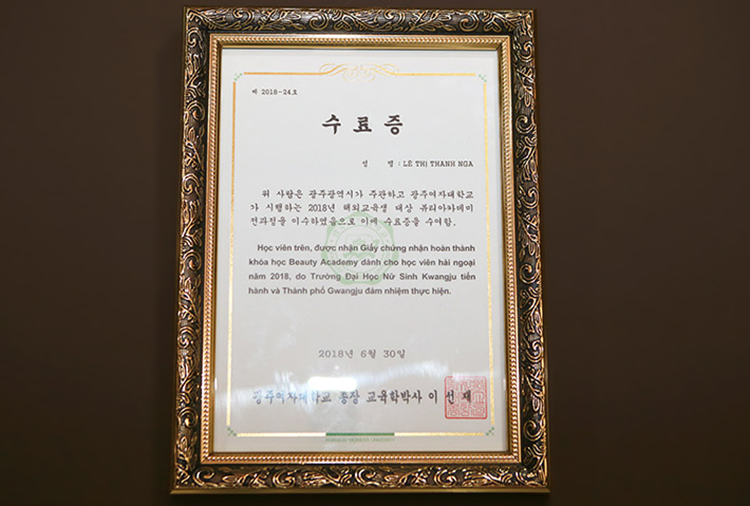 제 2018-24호
수 료 증
성 명 : LÊ THỊ THANH NGA
위 사람은 광주광역시가 주관하고 광주여자대학교
가 시행하는 2018년 해외교육생 대상 뷰티아카데미
전과정을 이수하였음으로 이에 수료증을 수여함.
Học viên trên, được nhận Giấy chứng nhận hoàn thành
khóa học Beauty Academy dành cho học viên hải ngoại
năm 2018, do Trường Đại Học Nữ Sinh Kwangju tiến
hành và Thành phố Gwangju đảm nhiệm thực hiện.
2018년 6월 30일
광주여자대학교 총장 교육학박사 이 선 재
KWANGJU WOMEN'S UNIVERSITY